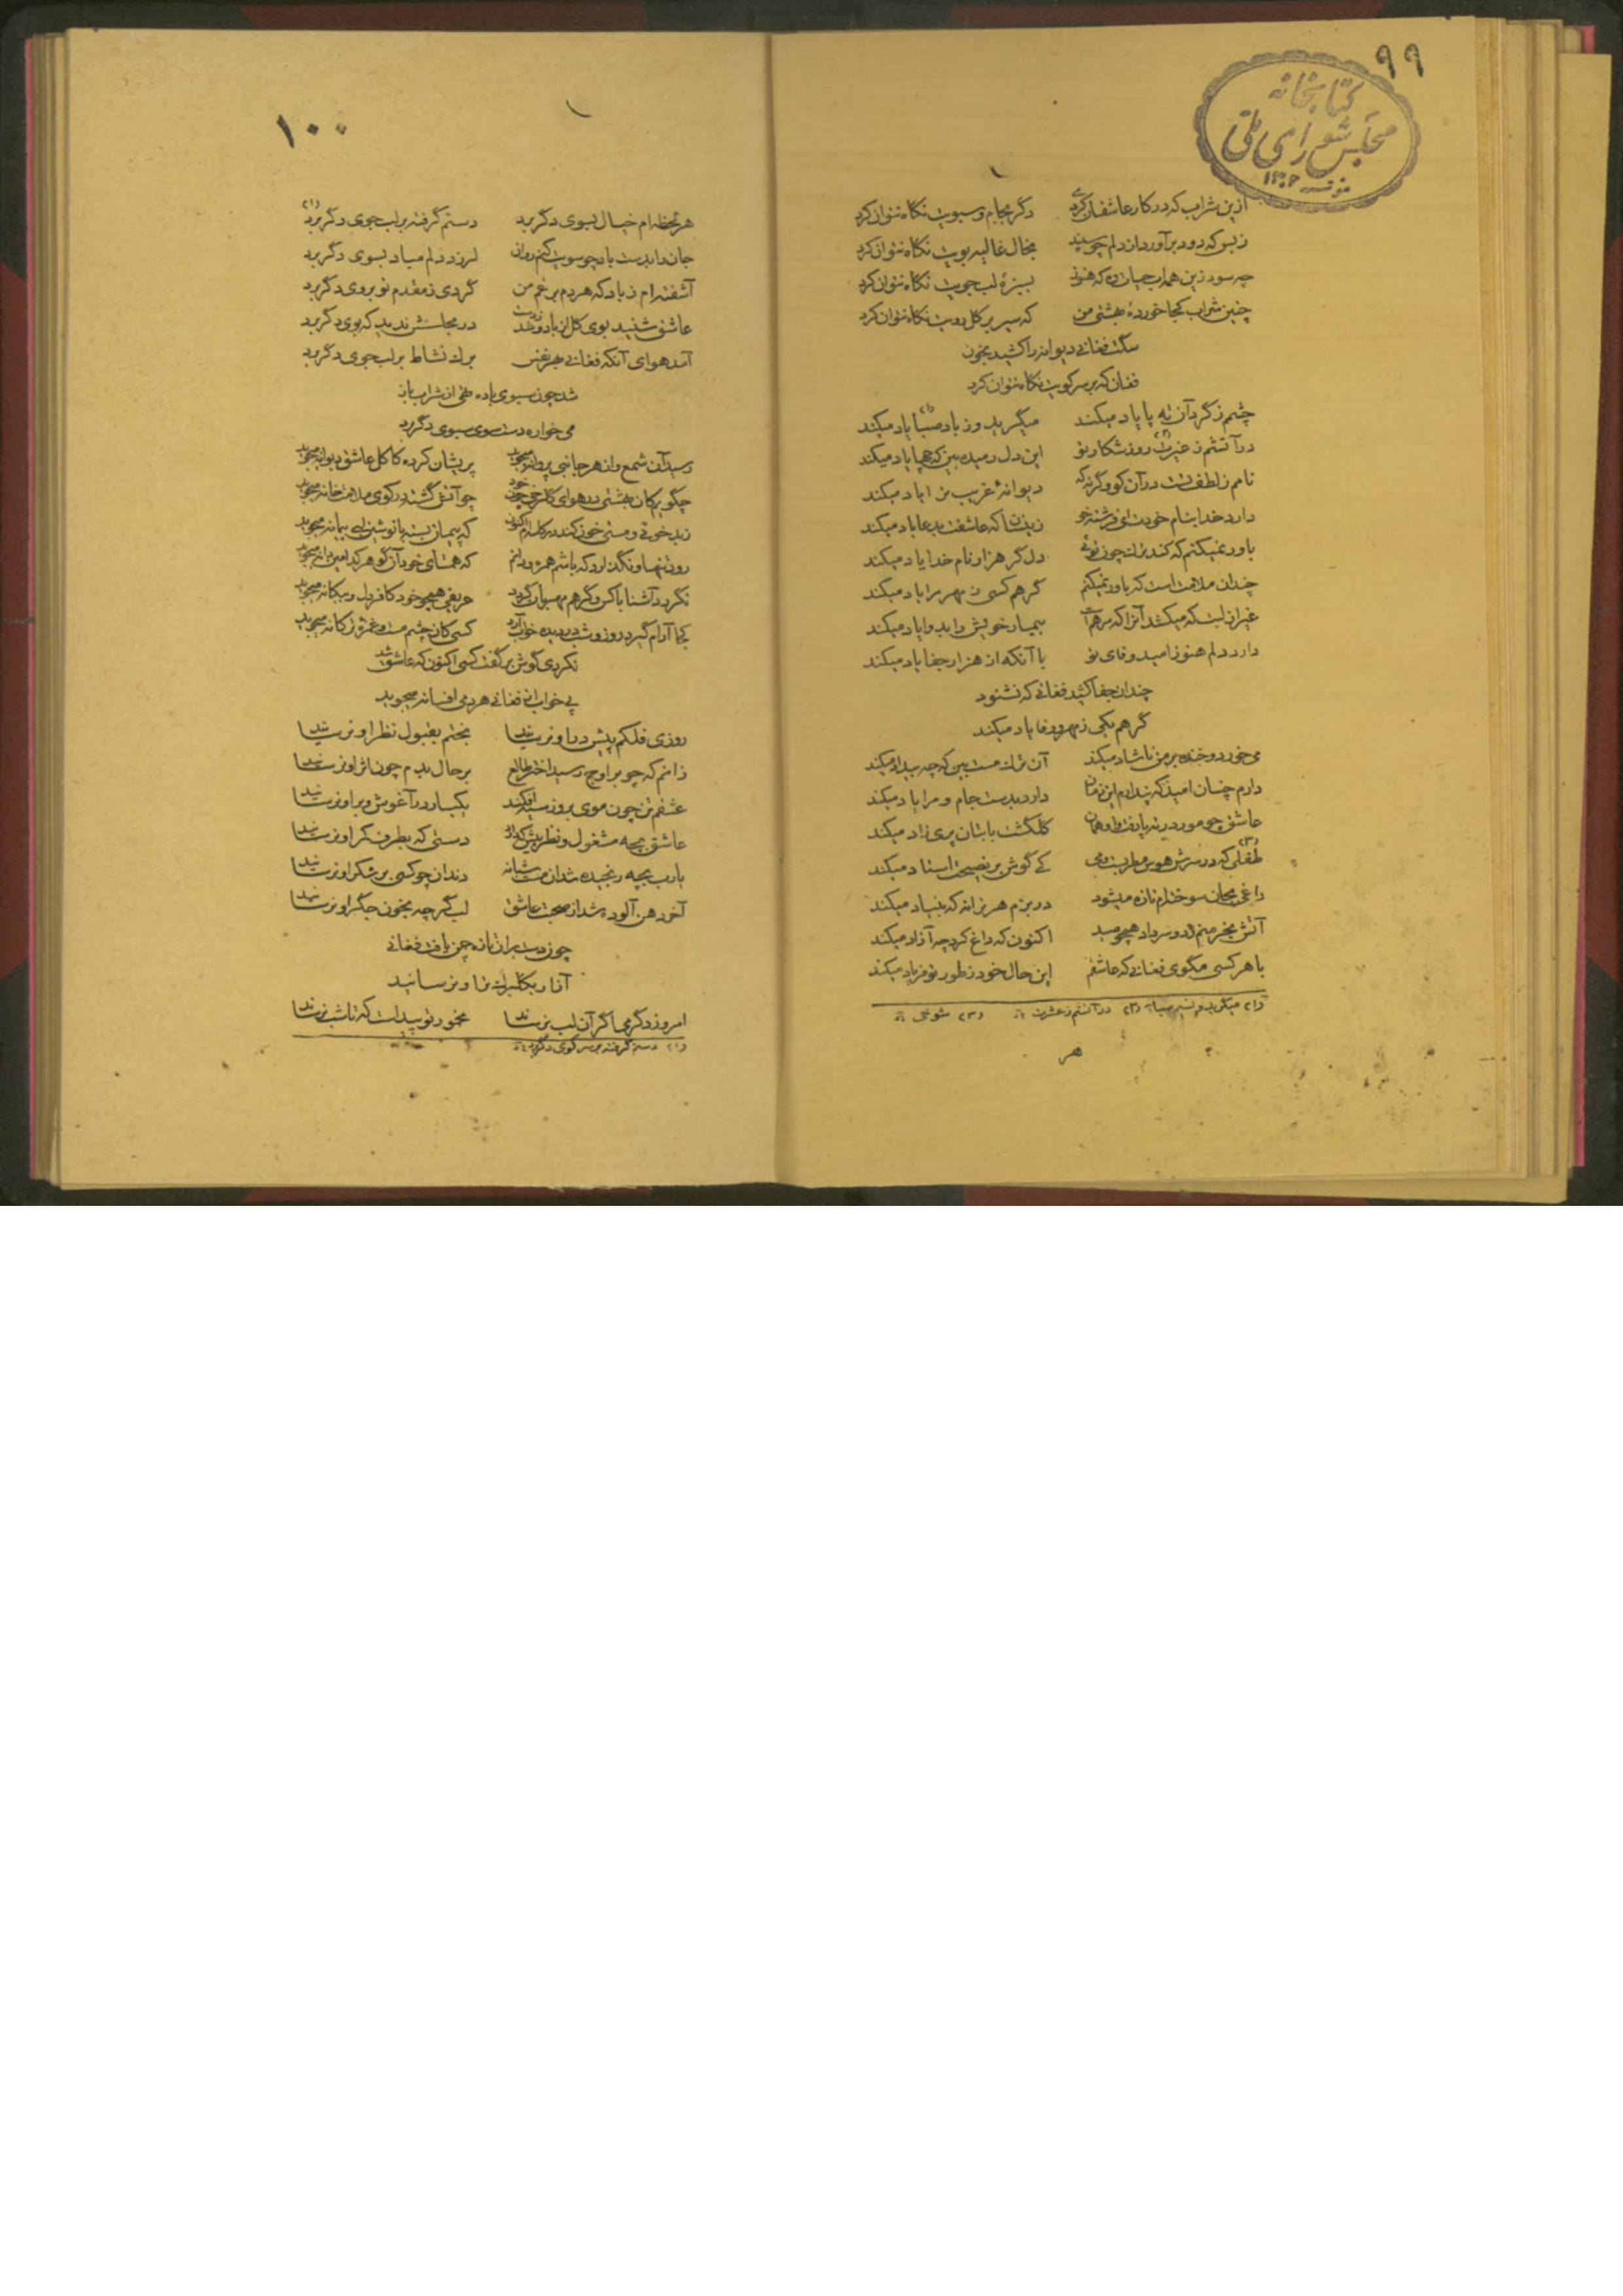 ۹۹
کتابخانه
مجلس شورای ملی
۱۳۰۲
ازین شراب که در کار عاشقان کردی دگر بجام و سبویت نگاه نتوان کرد
ز بس که دود برآورد از دلم چو سپند بخال غالیه بویت نگاه نتوان کرد
چه سود زین همه آب حیات که هنوز بسبزهٔ لب جویت نگاه نتوان کرد
چنین شراب کجا خوردهٔ بهشتی من که سیر بر گل رویت نگاه نتوان کرد
سگت فغانی دیوانه را کشید بخون
فغان که بر سر کویت نگاه نتوان کرد
چشمم ز گرد آن ته پا یاد میکند میگرید و ز باد صبا یاد میکند
در آتشم ز غیرت روز شکار تو این دل رمیده بین که چها یاد میکند
نامم ز لطف تست در آن کو وگرنه که دیوانهٔ غریب ترا یاد میکند
دارد خدا بنام خودت ای فرشته خو زینسان که عاشقت بدعا یاد میکند
باور نمیکنم که کند ترک چون توئی دل گر هزار نام خدا یاد میکند
چندان ملامت است که باور نمیکنم گر هم کسی ز مهر مرا یاد میکند
غیر از لبت که میکشد آنرا که مرهمست بیمار خویش را بدوا یاد میکند
دارد دلم هنوز امید وفای تو با آنکه از هزار جفا یاد میکند
چندان جفا کشید فغانی که نشنود
گر هم یکی ز مهر و وفا یاد میکند
می خورد و خنده بر من ناشاد میکند آن ترک مست بین که چه بیداد میکند
دارم چنان امید که پندارم این زمان دارد بدست جام و مرا یاد میکند
عاشق چو مور در ته پا رفت و او همان گلگشت با بتان پریزاد میکند
طفلی که در سرش هوس مطربست و می کی گوش بر نصیحت استاد میکند
داغی بجان سوخته‌ام تازه میشود در بزم هر ترانه که بنیاد میکند
آتش بخرمنم زد و سر داد همچو صید اکنون که داغ کرد چه آزاد میکند
با هر کسی مگوی فغانی که عاشقم این حال خود ز طور تو فریاد میکند
(۱) میگرید و نسیم صبا (۲) در آتشم ز عشرت (۳) شوخی
هر
۱۰۰
هر لحظه‌ام خیال بسوی دگر برد دستم گرفته بر لب جوی دگر برد (۱)
جان را بدست باد چو سویت کنم روان لرزد دلم مباد بسوی دگر برد
آشفته‌ام ز باد که هر دم برغم من گردی ز مقدم تو بروی دگر برد
عاشق شنید بوی گل از باد و زنده شد در مجلسش ندید که بوی دگر برد
آمد هوای آنکه فغانی بهر نفس برگ نشاط بر لب جوی دگر برد
شد چون سبوی باده تهی از شراب ناز
می خواره دست سوی سبوی دگر برد
رسید آن شمع و از هر جانبی پروانه میجوید پریشان کرده کاکل عاشق دیوانه میجوید
چگویم کان بهشتی در هوای گلرخی چون خود چو آتش گشته در کوی ملامت خانه میجوید
که پیمان بسته با نوشین لبی پیمانه میجوید
رود تنها و نگذارد که باشم همره و دانم که همتای خود آن گوهر کدامین دانه میجوید
نگردد آشنا با کس وگر هم مهربان گردد حریفی همچو خود کافر دل و بیگانه میجوید
کجا آرام گیرد روز و شب در دیده خواب آرد کسی کان چشم مست و غمزهٔ ترکانه میجوید
نکردی گوش بر گفت کسی اکنون که عاشق شد
پی خواب از فغانی هر دمی افسانه میجوید
روزی فلکم پیش در او نرسانید بختم بقبول نظر او نرسانید
زانم که چو بر اوج رسید اختر طالع بر حال بدم چون اثر او نرسانید
عشقم تن چون موی بروز سیه افکند یکبار در آغوش و بر او نرسانید
عاشق بچه مشغول و نظر بیش که او دستی که بطرف کمر او نرسانید
یارب بچه رنجیده شد آن مست شبانه دندان چو کسی بر شکر او نرسانید
آخر دهن آلوده شد از صحبت عاشق لب گرچه بخون جگر او نرسانید
چون دست بر آن تازه چمن یافت فغانی
آزار بگلبرگ تر او نرسانید
امروز دگر می اگر آن لب نرساند مخمور تو پیداست که تا شب نرساند
(۱) دستم گرفته بر سر کوی دگر برد